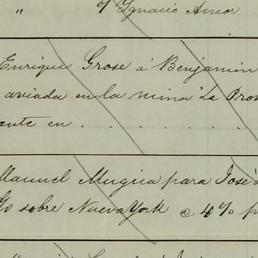 " o/ Ignacio Amor
Enrique Grose á Benjamin
aviada en la mina "La Prov
ante en . . . . . . . .
Manuel Mugica para José
sobre Nueva York @ 4% p